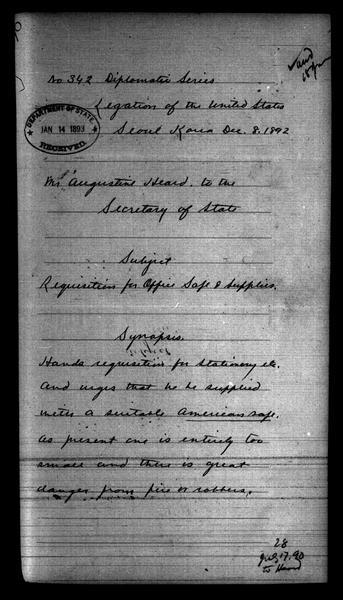 No 342 Diplomatic Series
Legation of the United States
Seoul Korea Dec. 8. 1892
DEPARTMENT OF STATE
JAN 14 1893
RECEIVED
Mr Augustine Heard to the
Secretary of State
Subject
Requisition for Office Safe & Supplies.
Synopsis.
Hands requisition for stationery etc.
and urges that he be supplied
with a suitable American safe.
as present one is entirely too
small and there is great
danger from fire or robbers.
28
July 17. 90
to Heard